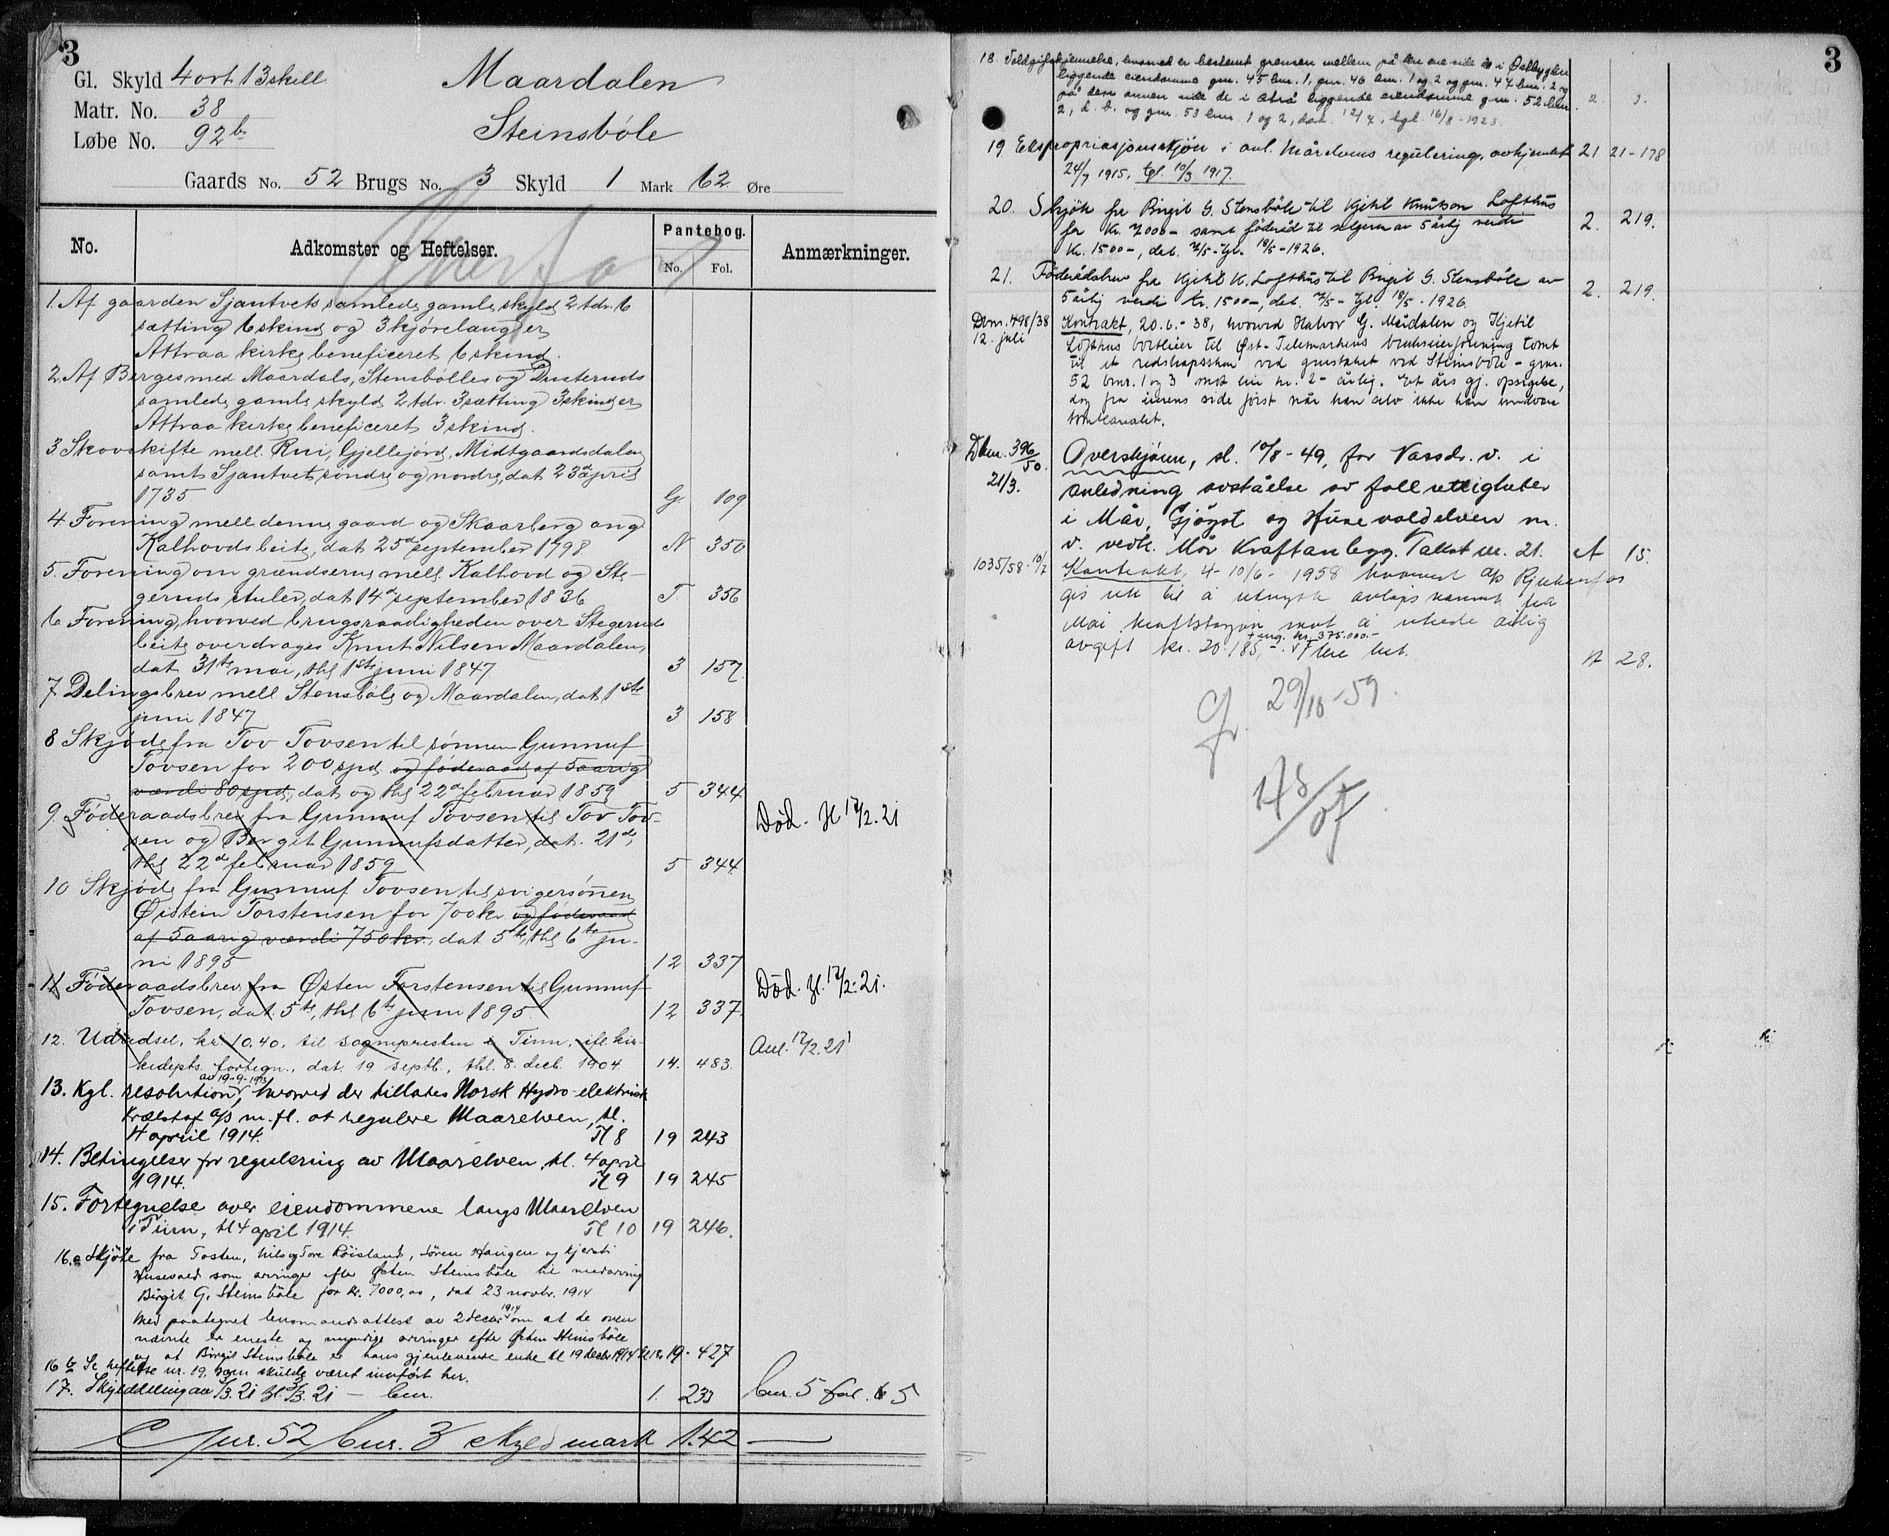 3
Gl. Skyld 4 ort 13 skill
Matr. No. 38
Løbe No. 92b
Maardalen
Steinsbøle
Gaards No. 52 Brugs No. 3 Skyld 1 Mark 62 Øre
No. Adkomster og Heftelser. Pantebog. No. Fol. Anmærkninger.
Overført
1. Af gaarden Sjantvets samlede gamle skyld 2 tdr. 6
sætting 6 skind og 3 kjørelang er
Attraa kirke beneficeret 6 skind.
2. Af Berges med Maardals, Stensbølles og Dusteruds
samlede gamle skyld 2 tdr. 3 sætting 3 skind er
Attraa kirke beneficeret 3 skind.
3. Skovskifte mell. Rui, Gjellejord, Midtgaardsdalen
samt Sjantvet søndre og nordre, dat 23d april
1735 G 109
4 Forening mell denne gaard og Skaarberg ang
Kalhovdsbeite, dat 25d september 1798 N 350
5. Forening om grændserne mell Kalhovd og Ste-
geruds støler, dat 14d september 1836 T 356
6 Forening, hvorved brugsraadigheden over Stegeruds
beite overdrages Knut Nilsen Maardalen,
dat 31te mai, thl 1ste juni 1847 3 157
7 Delingsbrev mell Stensbøle og Maardalen, dat 1ste
juni 1847 3 158
8 Skjøde fra Tov Tovsen til sønnen Gunnuf
Tovsen for 200 spd og føderaad af 5 aarig
værdi 80 spd, dat og thl 22d februar 1859 5 344
9. Føderaadsbrev fra Gunnuf Tovsen til Tov Tov-
sen og Berget Gunnufsdatter, dat. 21d,
thl 22d februar 1859 5 344 Død. Hl 17/2. 21
10 Skjøde fra Gunnuf Tovsen til svigersønnen
Øistein Torstensen for 700 kr og føderaad
af 5 aarig værdi 750 kr., dat 5te, thl 6te ju-
ni 1895 12 337
11 Føderaadsbrev fra Østen Torstensen til Gunnuf
Tovsen, dat 5te, thl 6te juni 1895 12 337 Død. Hl. 17/2. 21.
12. Udredsel, kr 10.40, til sognepresten i Tinn, ifl. kir-
kedepts. fortegn., dat. 19 septb., thl. 8. decb. 1904 14. 483. Aul. 17/2. 21
13. Kgl. resolution av 19-9-1913, hvorved der tillates Norsk Hydro-elektrisk
Kvælstof a/s m. fl. at regulere Maarelven, tl.
4 april 1914. Tl 8 19 243
14. Betingelser for regulering av Maarelven, tl. 4 april
1914. Tl 9 19 245
15. Fortegnelse over eiendommene langs Maarelven
i Tinn, tl 4 april 1914. Tl 10 19 246.
16.a Skjøte fra Tosten, Nils og Tore Røisland, Søren Haugen og Kjersti
Husevold som arvinger efter Østen Steinsbøle til medarving
Birgit G. Steinsbøle for kr. 7000,00, dat 23 novbr. 1914
Med paategnet lensmandsattest av 2 decbr 1914 om at de oven
nævnte er eneste og myndige arvinger efter Østen Steinsbøle
og at Birgit Steinsbøle er hans gjenlevende enke tl 19 decbr 1914 19- 427
16 b Se heftelse nr. 19, som skulde været innført her.
17. Skylddeling av 1/3. 21 tl. 3/3. 21 — bnr. 1. 233 bnr. 5 fol. 65
Gnr. 52 bnr. 3 skyld mark 1.42
3
18 Voldgiftskjennelse, hvorved er bestemt grensen mellem på den ene side de i Østbygden
liggende eiendomme gnr. 45 bnr. 1, gnr. 46 bnr. 1 og 2 og gnr. 47 bnr. 2 og
på den annen side de i Atrå liggende eiendomme gnr. 52 bnr.
2, 3. 5. og gnr. 53 bnr. 1 og 2, dat. 12/7, tgl. 16/8-1923. 2 3.
19 Ekspropriasjonsskjøn i anl. Mårelvens regulering, avhjemlet 21 21-178
24/7 1915. tgl. 10/3 1917.
20. Skjøte fra Birgit G. Stensbøle til Kjetil Knutson Lofthus
for kr. 7000- samt føderåd til selgeren av 5 årlig verdi 2. 219.
kr. 1500-, dat. 7/5- tgl. 18/5-1926.
21. Føderådsbrev fra Kjetil K. Lofthus til Birgit G. Stensbøle av
5 årlig verdi kr. 1500-, dat. 7/5- tgl. 18/5-1926. 2. 219.
Dbnr. 498/38
12. juli
Kontrakt, 20.6.-38, hvorved Halvor G. Mårdalen og Kjetil
Lofthus bortleier til Øst-Telemarkens brukseierforening tomt
til et redskapsskur ved grustaket ved Steinsbøle - gnr.
52 bnr. 1 og 3 mot leie kr. 2- årlig. Et års gj. opsigelse,
dog fra eierens side først når han selv ikke kan undvære
tomtearealet.
Dbnr. 396/50
21/3.
Overskjønn, sl. 10/8-49, for Vassdr. v. i
anledning avståelse av fallrettigheter
i Mår, Gjøyst og Husevoldelven m.
v. vedk. Mår Kraftanlegg. Takst nr. 21. A 15.
1035/58-10/7 Kontrakt, 4-10/6-1958 hvorved A/S Rjukanfos
gis rett til å utnytte avløpsvannet fra
Mår kraftstasjon mot å utrede årlig
avgift kr. 20 185,- + eng. kr. 375.000.- Flere best. A 28.
29/10-59.